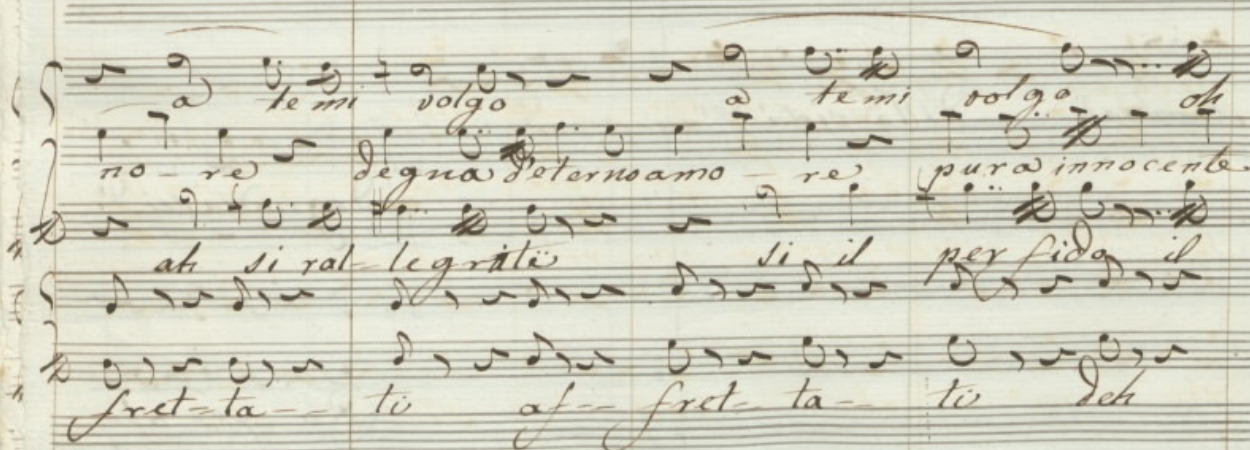 a te mi volgo a te mi volgo oh
no - re degna d'eterno amo - re pura innocente
ah si ral - legrati si il perfido il
fret - ta - ti af - fret - ta - ti deh